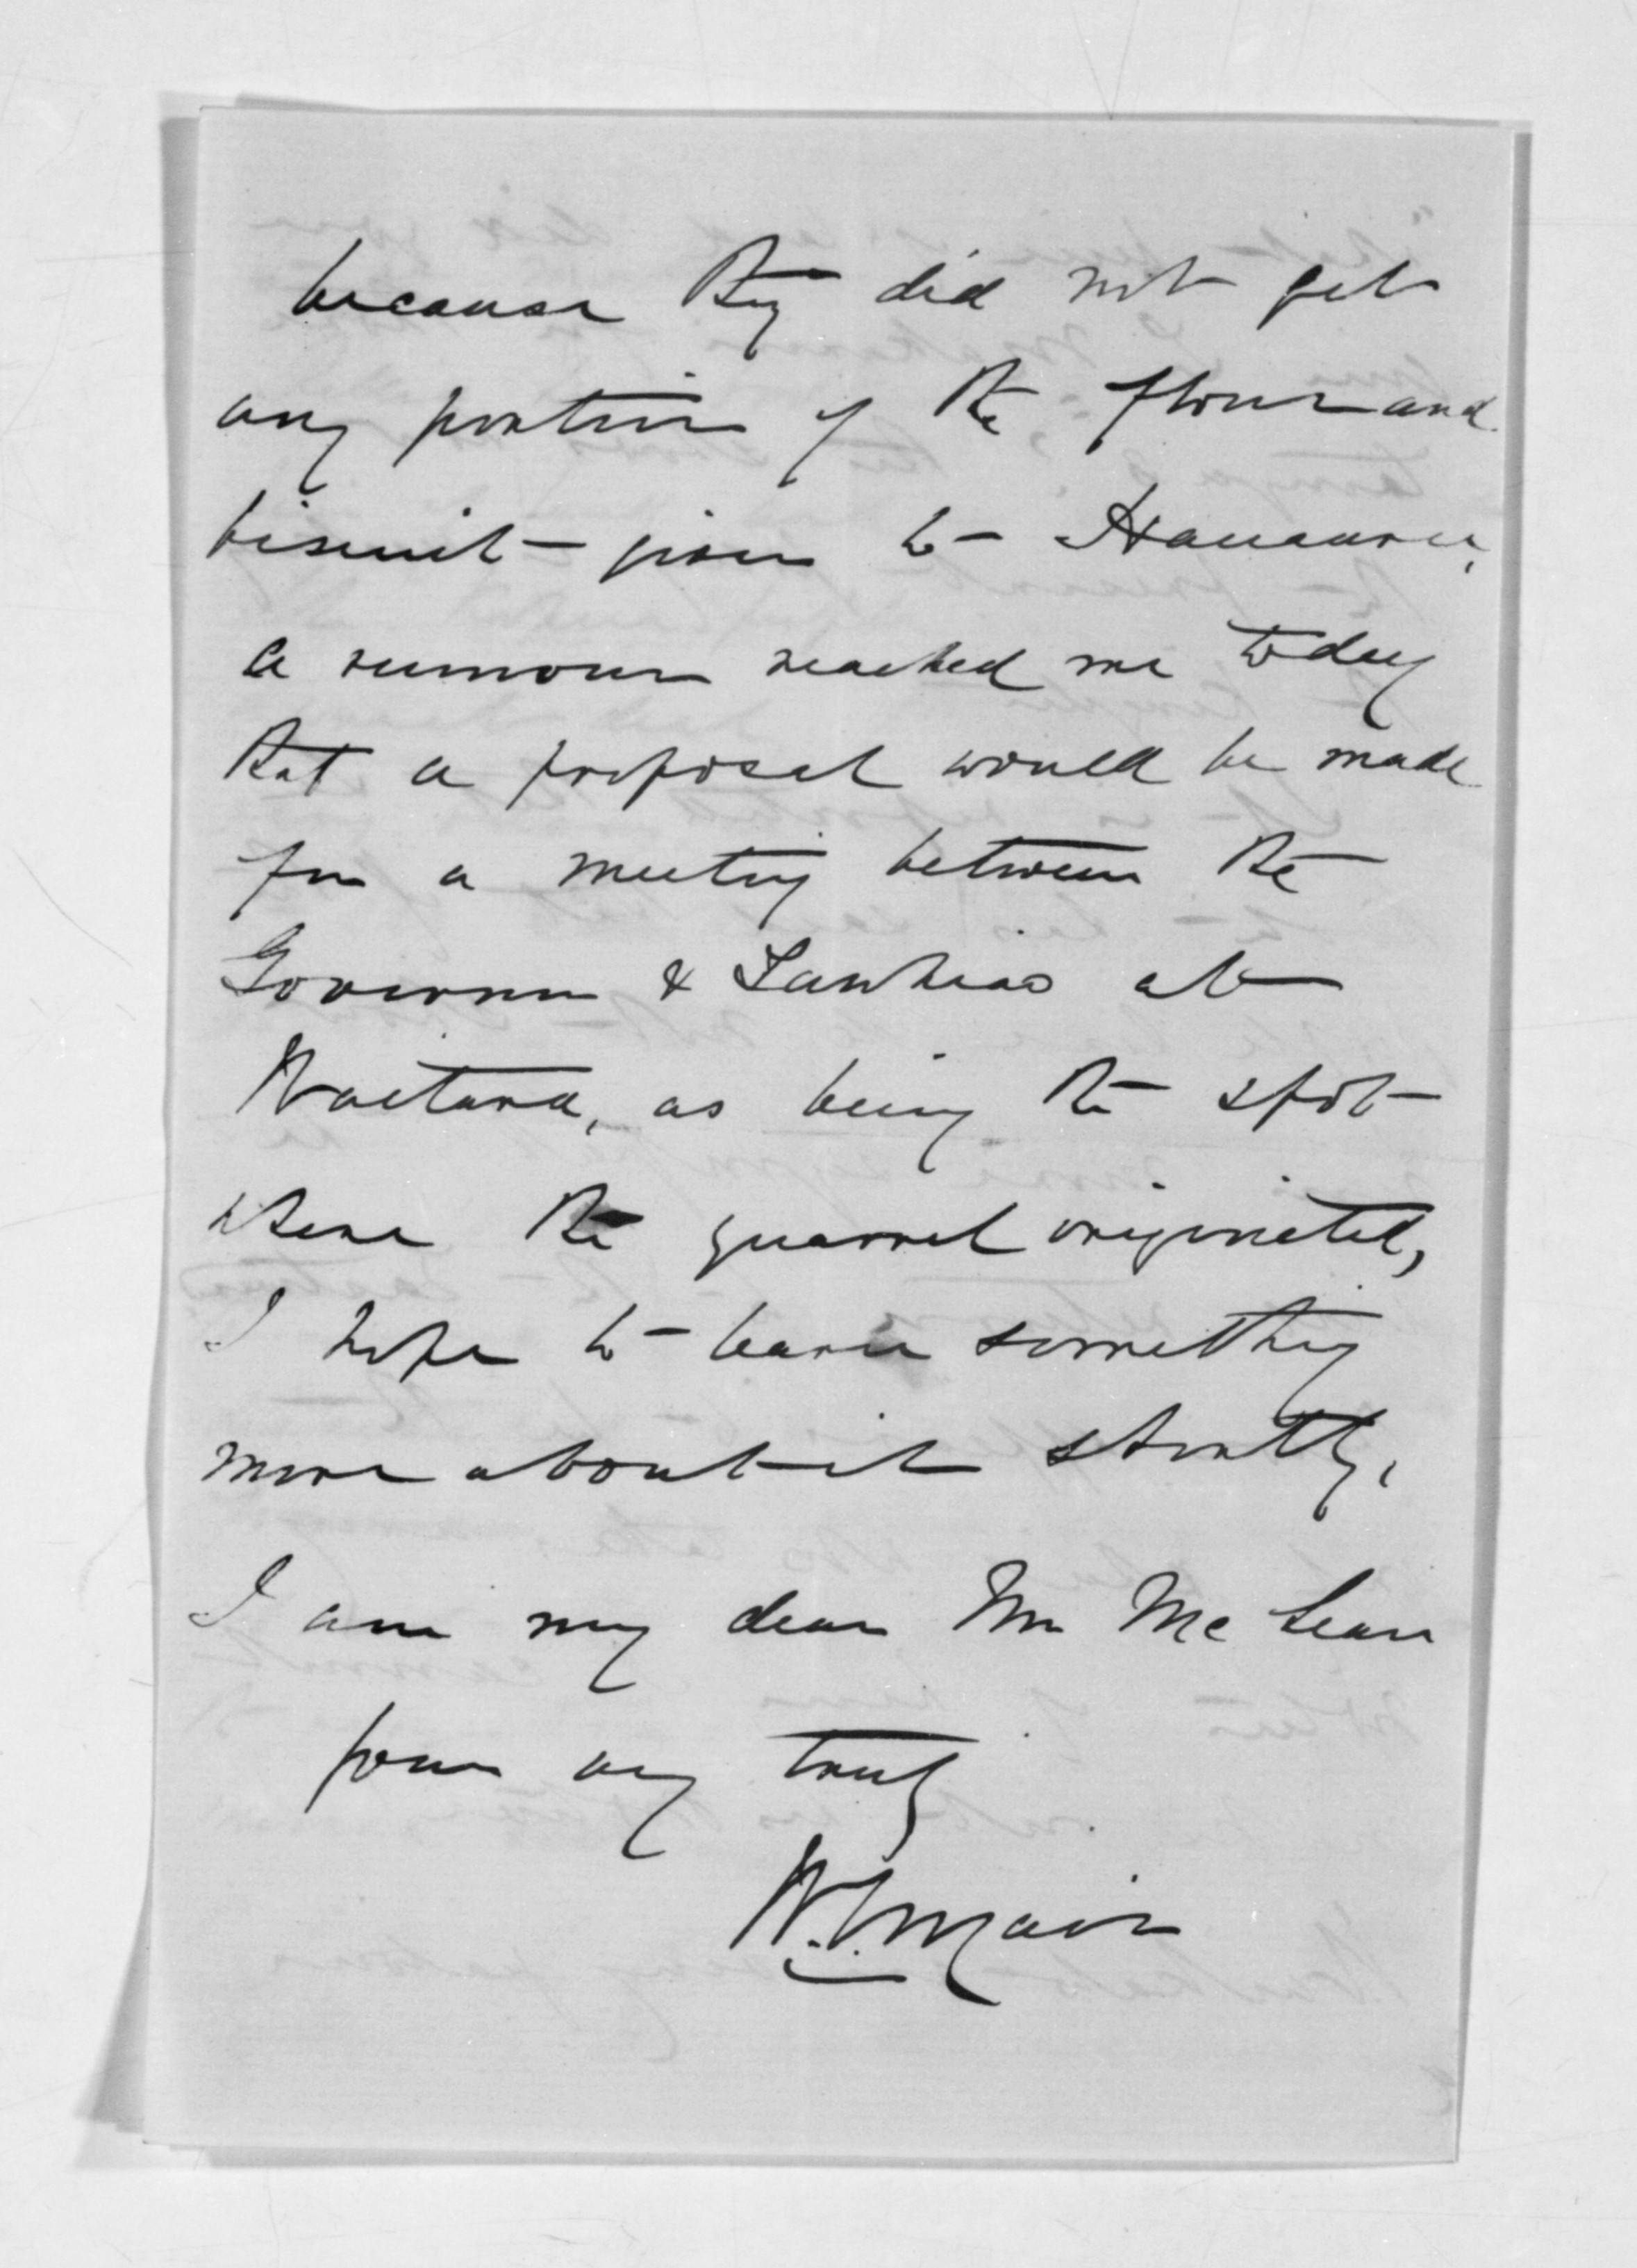 because they did not get
any portion of the flour and
biscuit given to Hauauru,
a rumour reached me today
that a proposal would be made
for a meeting between the
Governor & Tawhiao at
Waitara, as being the spot
where the quarrel originated,
I hope to learn something
more about it shortly,
I am my dear Mr McLean
yours very truly
W.G. Mair